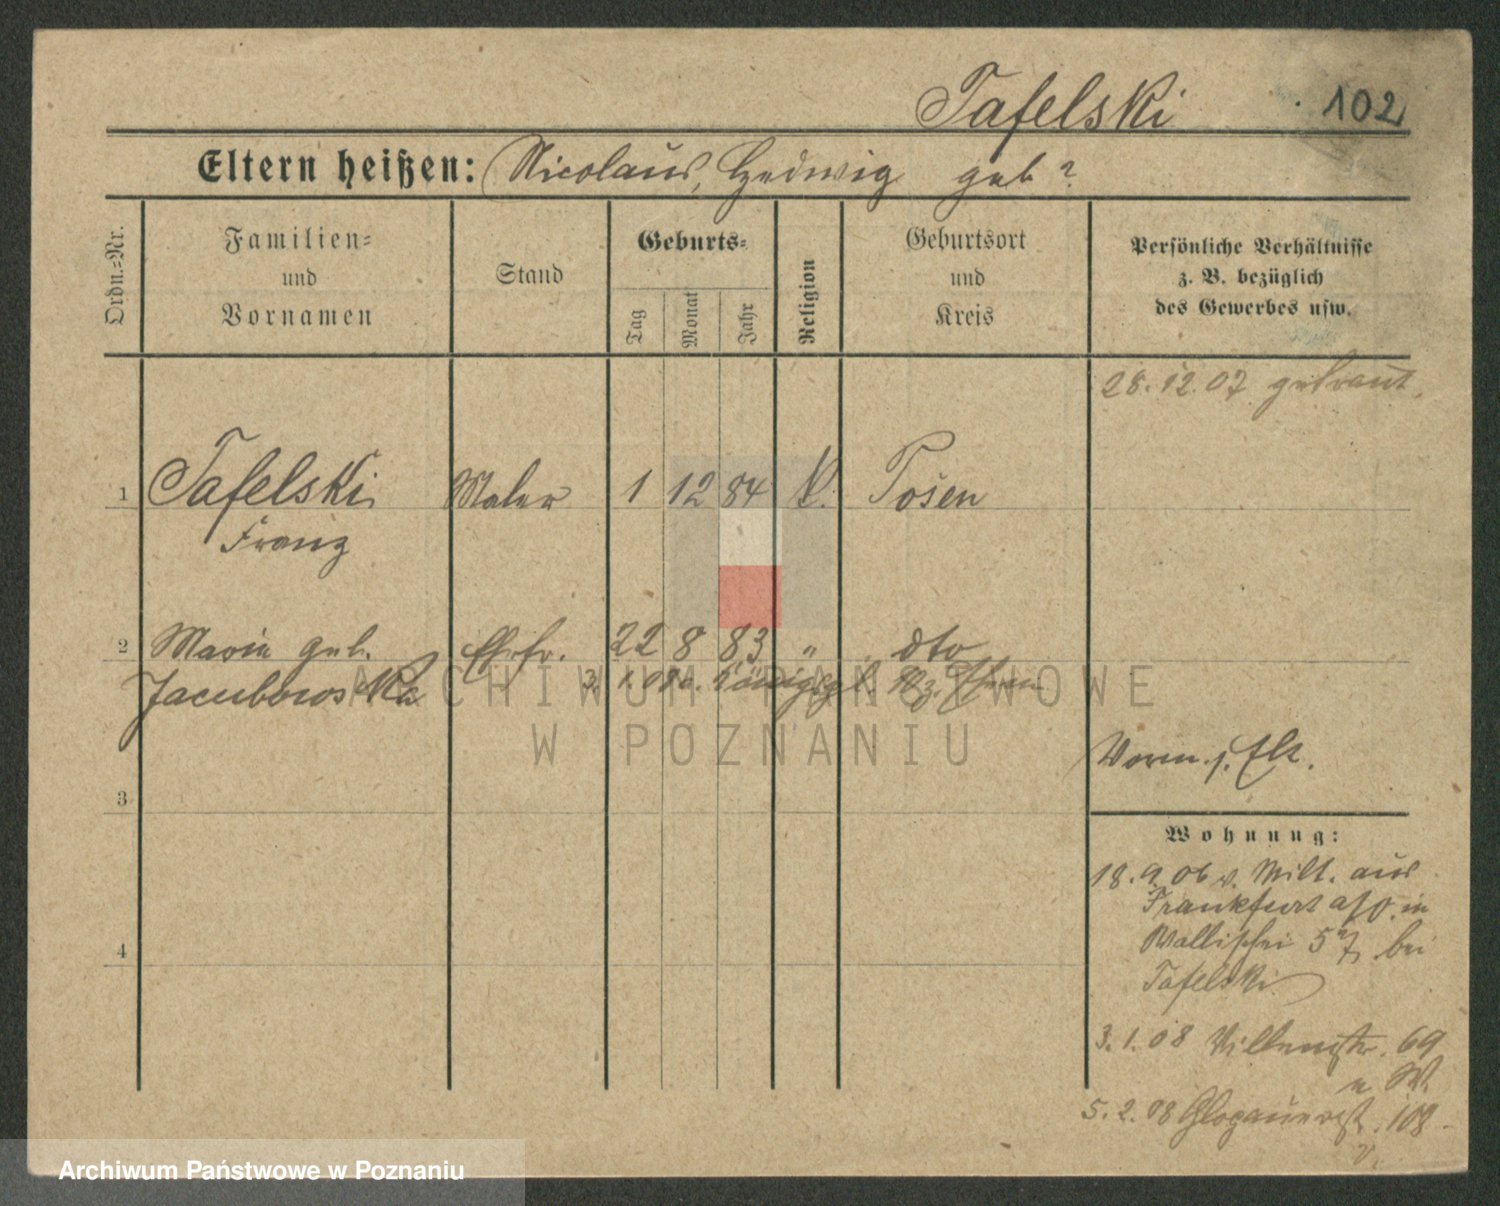 Tafelski 102
Eltern heißen: Nicolaus, Hedwig geb ?
Ordn.-Nr.
Familien- und Vornamen
Stand
Geburts-
Tag Monat Jahr
Religion
Geburtsort und Kreis
Persönliche Verhältnisse
z. B. bezüglich
des Gewerbes usw.
28.12.07 getraut.
1 Tafelski Maler 1 12 84 K. Posen
Franz
2 Maria geb. Ehefr. 22 8 83 " dto
Jacubowska 3. 1.08
ARCHIWUM PAŃSTWOWE
W POZNANIU
Vorm. s. Elt.
3
Wohnung:
18.9.06 v. Milt. aus
Frankfurt a/O. in
Wallischei 57 bei
4
Tafelski
3.1.08 69
u W.
5.2.08 Glogauerst. 108.
v.
Archiwum Państwowe w Poznaniu